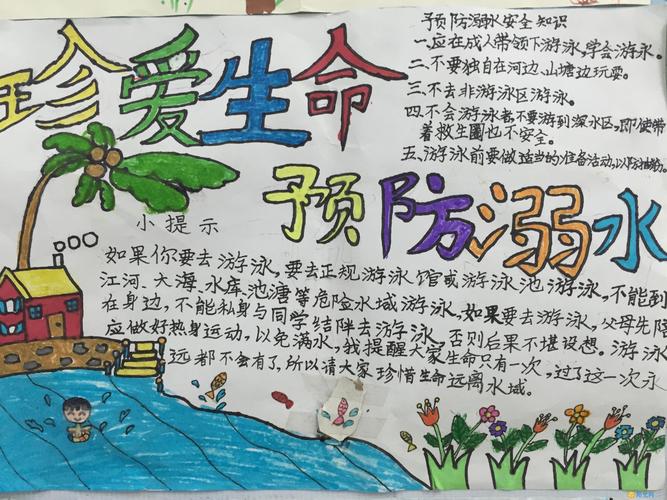 珍爱生命
预防溺水安全知识
一.应在成人带领下游泳,学会游泳。
二.不要独自在河边、山塘边玩耍。
三.不去非游泳区游泳。
四.不会游泳者不要游到深水区,即使带
着救生圈也不安全。
五.游泳前要做适当的准备活动,以防抽筋。
预防溺水
小提示
如果你要去游泳,要去正规游泳馆或游泳池游泳,不能到
江河、大海、水库、池塘等危险水域游泳,如果要去游泳,父母先陪
在身边,不能私身与同学结伴去游泳,否则后果不堪设想。游泳
应做好热身运动,以免满水,我提醒大家生命只有一次,过了这一次永
远都不会有了,所以请大家珍惜生命远离水域。